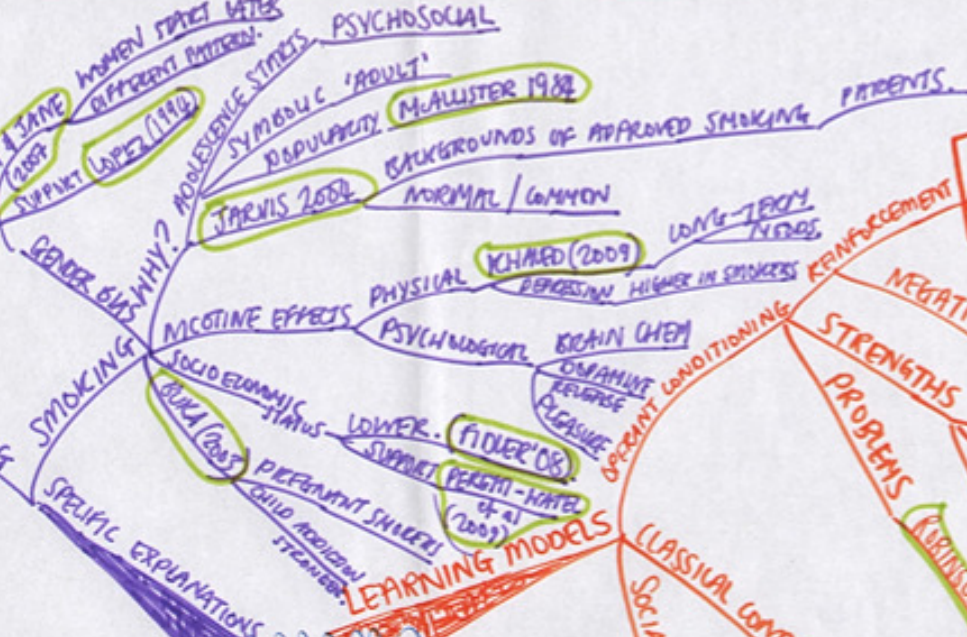 WOMEN START LATER
DIFFERENT PATTERN.
& JANE
(2007
SUPPORT
LOPEZ (1994)
GENDER BIAS
WHY?
ADOLESCENCE STARTS
PSYCHOSOCIAL
SYMBOLIC 'ADULT'
POPULARITY
McALLISTER 1984
JARVIS 2004
BACKGROUNDS OF APPROVED SMOKING
PARENTS.
NORMAL / COMMON
NICOTINE EFFECTS
PHYSICAL
KHALED (2009)
LONG-TERM
DEPRESSION HIGHER IN SMOKERS
PSYCHOLOGICAL
BRAIN CHEM
DOPAMINE
RELEASE
PLEASURE
SMOKING
SOCIO ECONOMIC
STATUS
LOWER.
FIDLER '08
SUPPORT
PERETTI-WATEL
et al
(2009)
BUKA (2003)
PREGNANT SMOKERS
CHILD ADDICTION
STRONGER.
SPECIFIC EXPLANATIONS
LEARNING MODELS
OPERANT CONDITIONING
REINFORCEMENT
NEGATI
STRENGTHS
PROBLEMS
ROBINSO
CLASSICAL CON
SOCIA